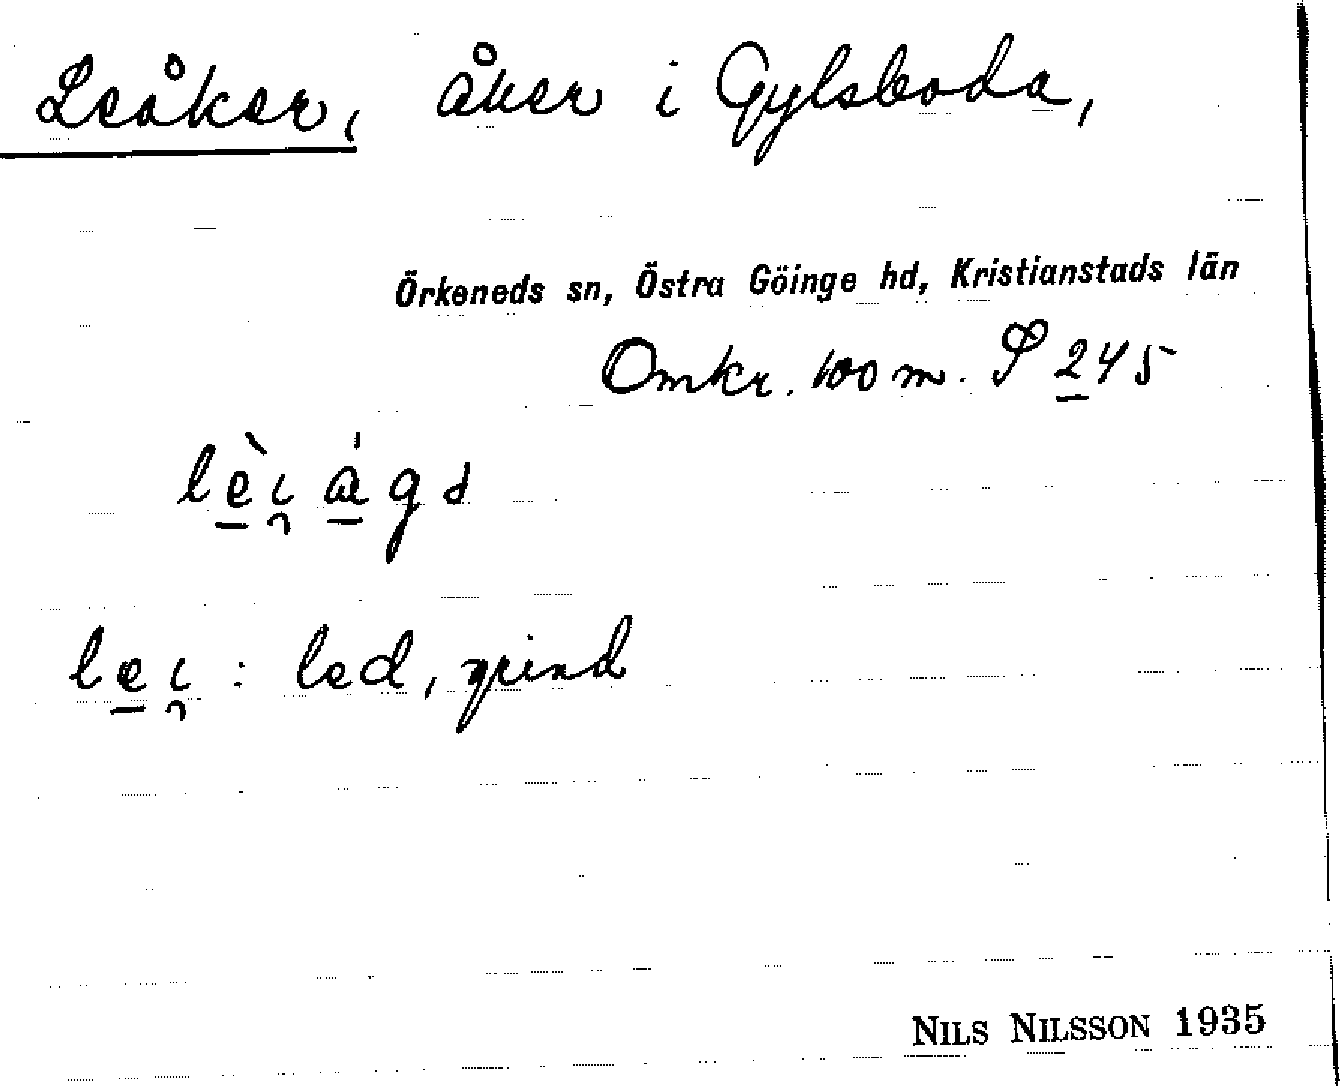 Leåker, åker i Gylsboda,
Örkeneds sn, Östra Göinge hd, Kristianstads län
Omkr. 100 m. S 245
lei : led, grind
NILS NILSSON 1935